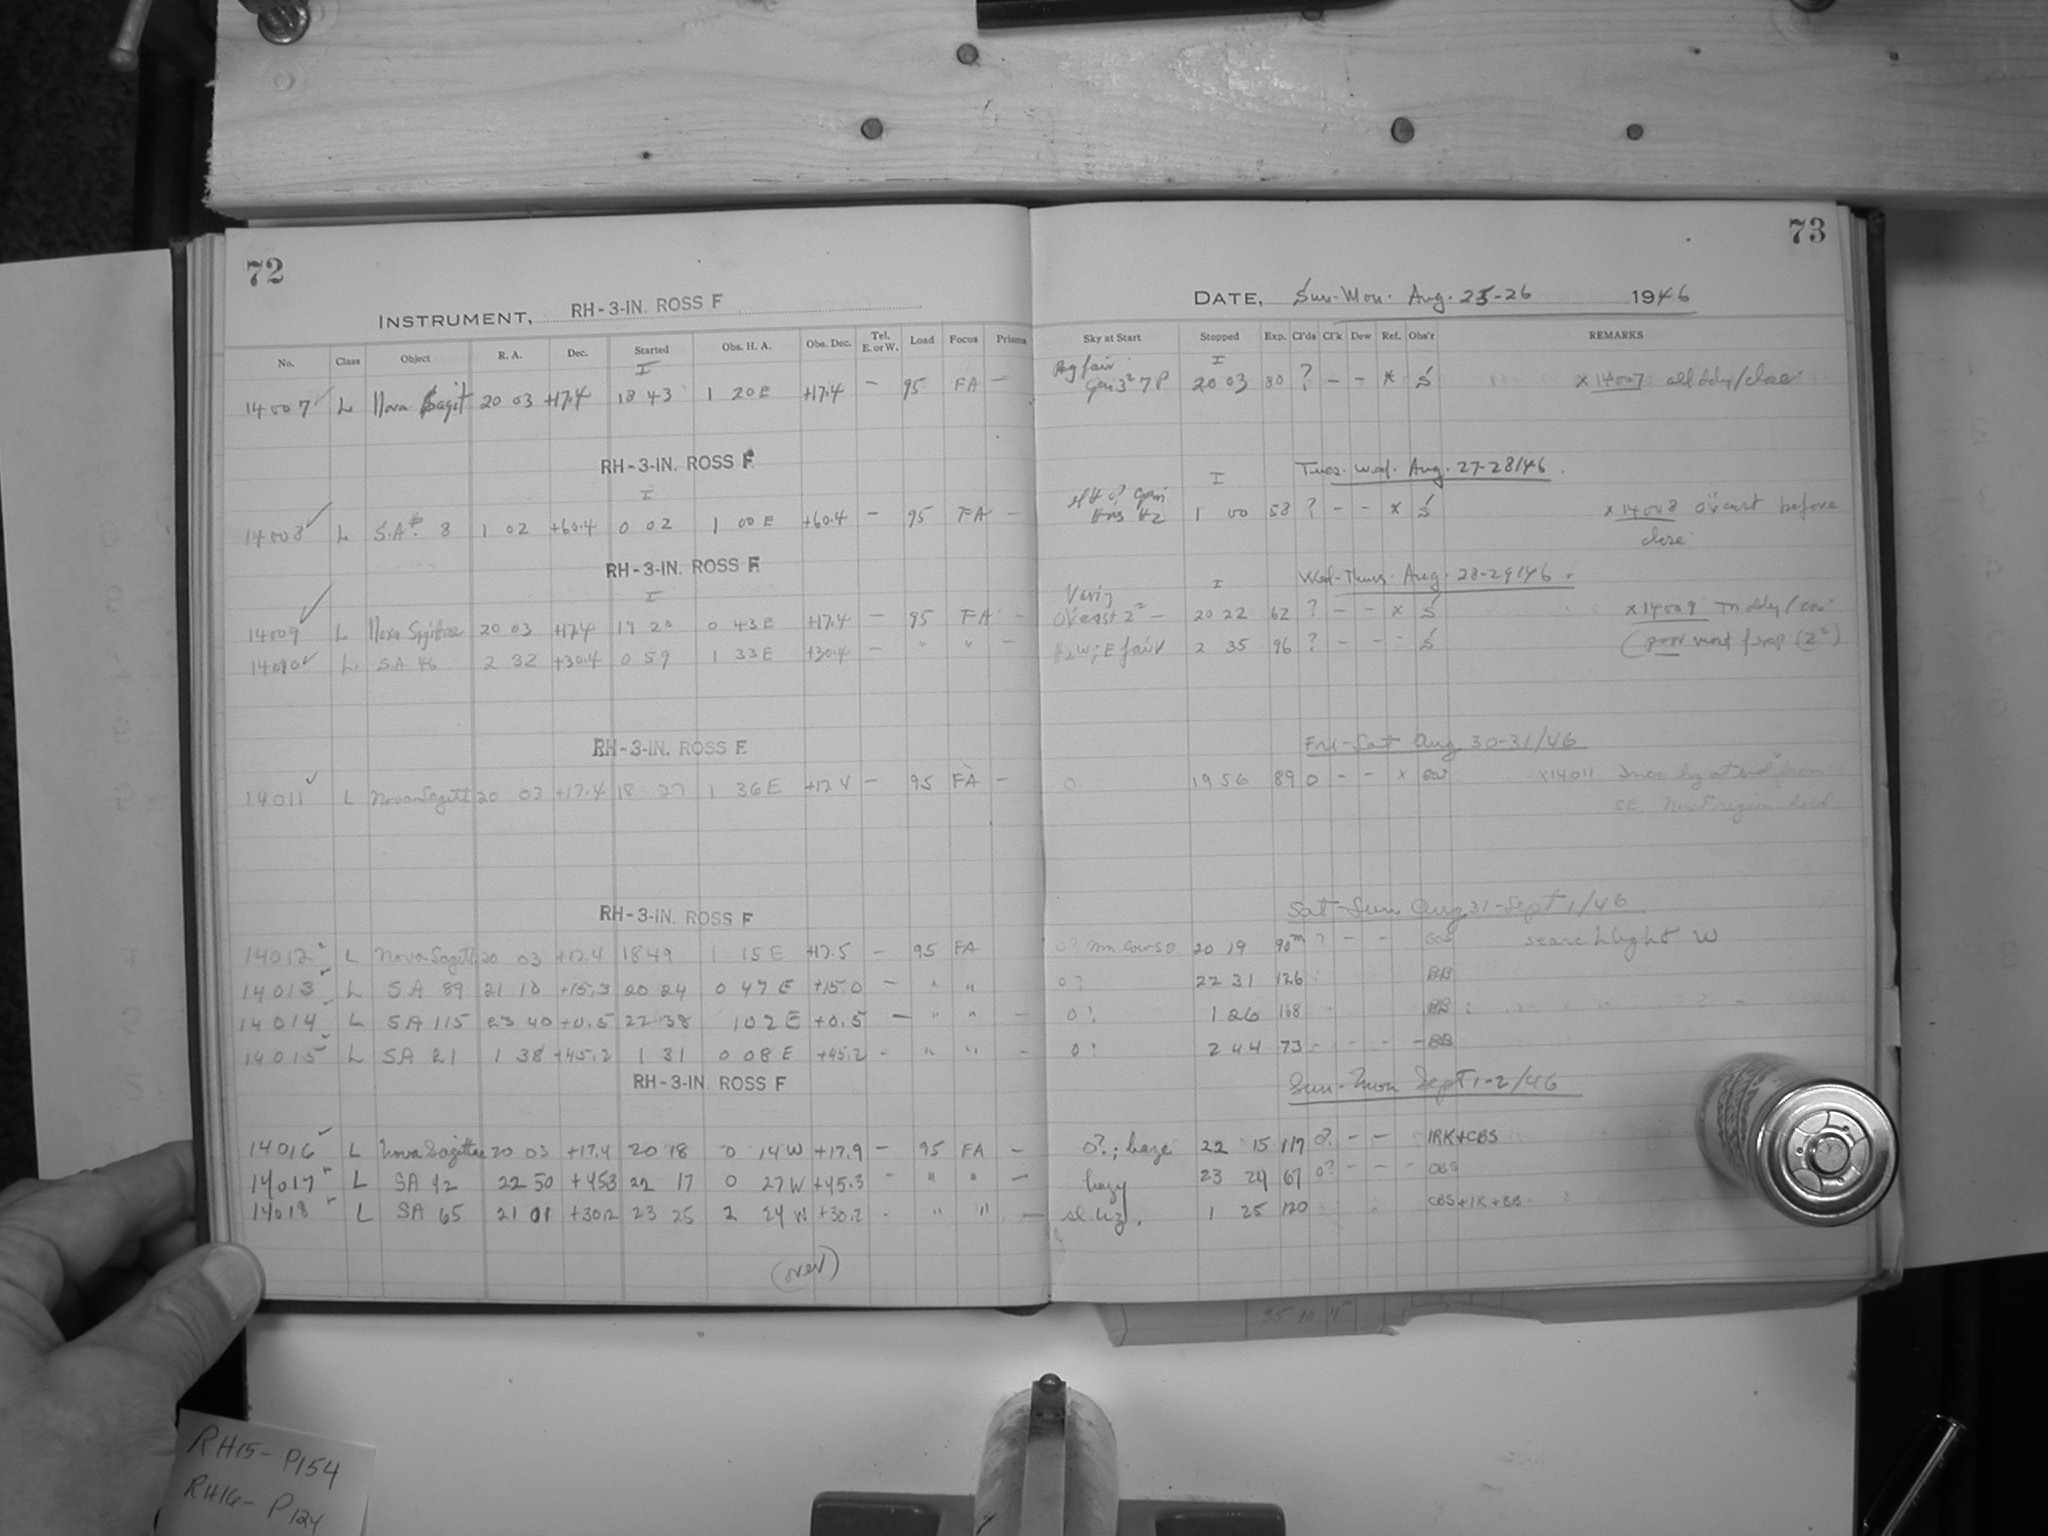 72
73
INSTRUMENT, RH-3-IN. ROSS F
DATE, Sun-Mon. Aug. 25-26 1946
No. Class Object R. A. Dec. Started Obs. H. A. Obs. Dec. Tel. E. or W. Load Focus Prisms Sky at Start Stopped Exp. Cl'ds Cl'k Dew Ref. Obs'r REMARKS
I I
14007 L Nova Sagit 20 03 +17.4 18 43 1 20 E +17.4 - 95 FA - 20 03 80 ? - - * S x 14007 all ddy/close
RH-3-IN. ROSS F Tues. Wed. Aug. 27-28/46.
I I
14008 L S.A. 8 1 02 +60.4 0 02 1 00 E +60.4 - 95 FA - 1 00 58 ? - - x S x 14008 ov'cast before
close
RH-3-IN. ROSS F Wed-Thurs. Aug. 28-29/46.
I I
14009 L Nova Sagittae 20 03 +17.4 19 20 0 43 E +17.4 - 95 FA - Ov'cast 2² - 20 22 62 ? - - x S x 14009
14010 L. SA 46 2 32 +30.4 0 59 1 33 E +30.4 - " " - Hz W; E fair 2 35 96 ? - - - S (poor most f exp (2²)
RH-3-IN. ROSS F Fri-Sat Aug 30-31/46
14011 L Nova Sagitt 20 03 +17.4 18 27 1 36 E +17.4 - 95 FA - 0. 19 56 89 0 - - x x14011 at end from
SE. Next region
RH-3-IN. ROSS F Sat-Sun Aug 31-Sept 1/46
14012 L Nova Sagitt 20 03 +17.4 18 49 1 15 E +17.5 - 95 FA 0? 20 19 90m ? - - searchlight W
14013 L SA 89 21 10 +15.3 20 24 0 47 E +15.0 - " " 0? 22 31 126 BB
14014 L SA 115 23 40 +0.5 22 38 1 02 E +0.5 - " " - 0? 1 26 168 BB
14015 L SA 21 1 38 +45.2 1 31 0 08 E +45.2 - " " - 0? 2 44 73 - - - - BB
RH-3-IN. ROSS F Sun-Mon Sept 1-2/46
14016 L Nova Sagittae 20 03 +17.4 20 18 0 14 W +17.9 - 95 FA - 0?; haze 22 15 117 0? - - IRK+CBS
14017 L SA 42 22 50 +45.3 22 17 0 27 W +45.3 - " " - hazy 23 24 67 0? - - - CBS
14018 L SA 65 21 01 +30.2 23 25 2 24 W +30.2 - " " - sl. hz. 1 25 120 CBS+IK+BB
(over)
35 10
RH15- P154
RH16- P124